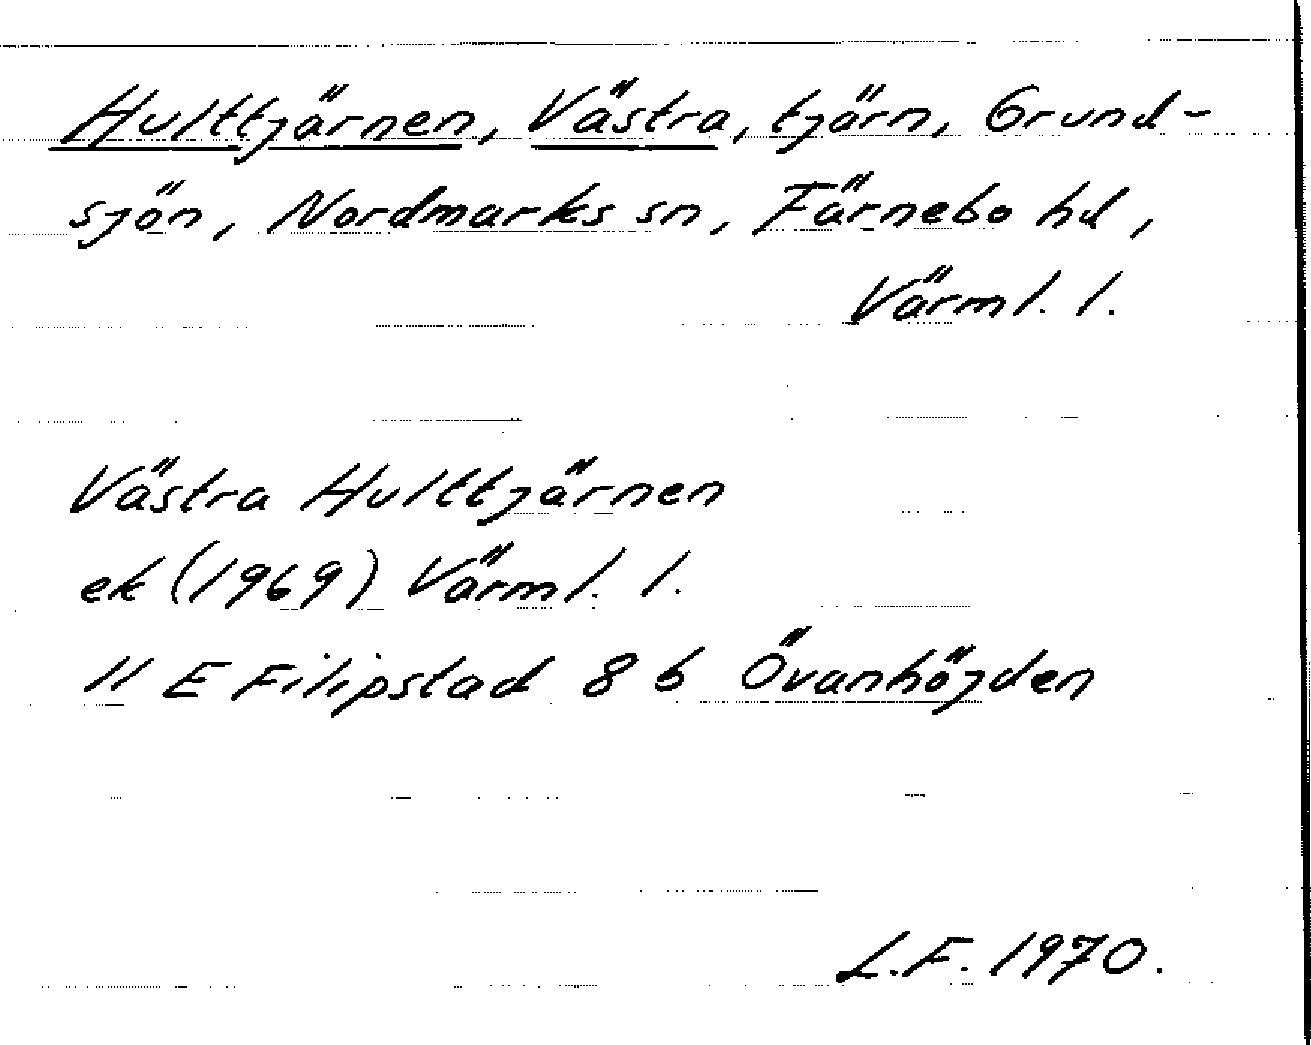 Hulttjärnen, Västra, tjärn, Grund-
sjön, Nordmarks sn, Färnebo hd,
Värml. l.
Västra Hulttjärnen
ek (1969) Värml. l.
11 E Filipstad 8 b Övanhöjden
L.F. 1970.